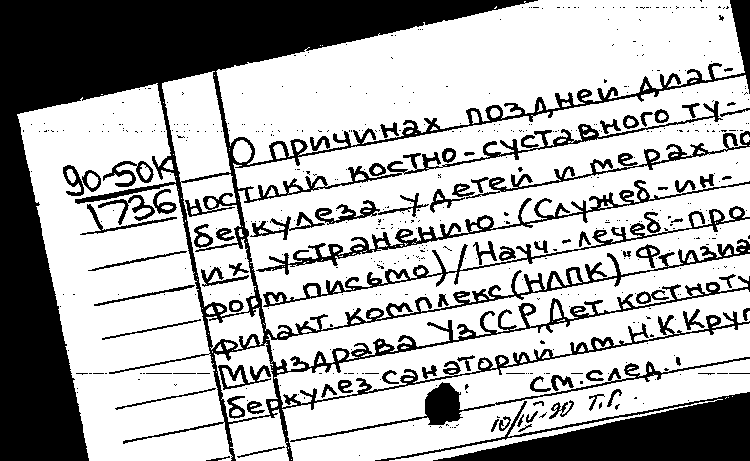 90-50К
1736
О причинах поздней диаг-
ностики костно-суставного ту-
беркулеза у детей и мерах по
их устранению: (Служеб.-ин-
форм. письмо) / Науч.-лечеб.-про
филакт. комплекс (НЛПК) "Фтизиа
Минздрава УзССР, Дет. костноту
беркулез санаторий им. Н.К. Круп
см. след.
10/IV-90 Т.Г.